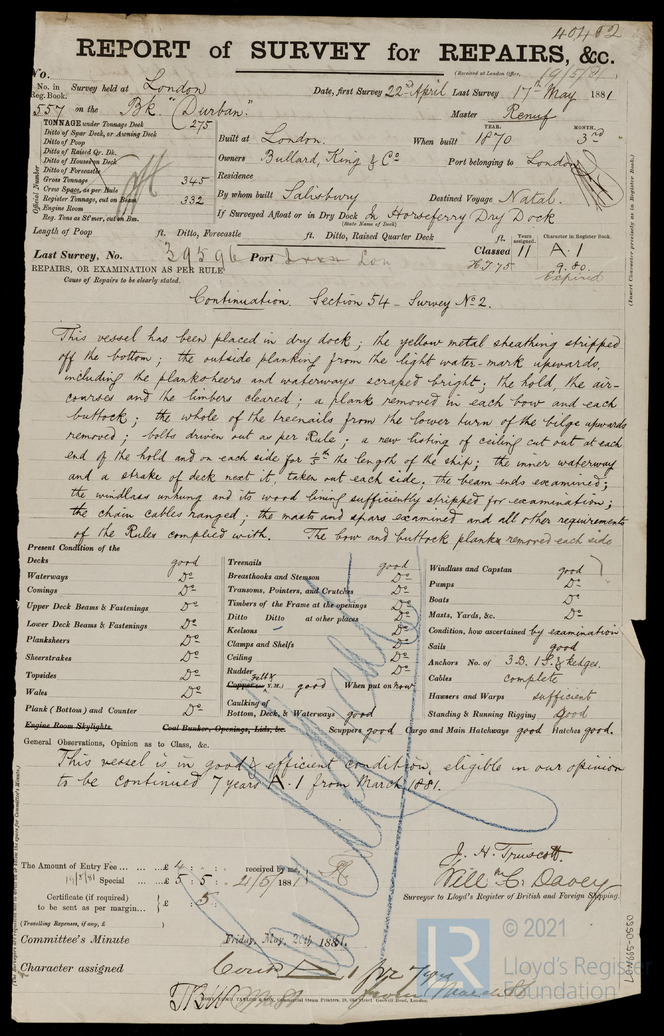 40402
REPORT of SURVEY for REPAIRS, &c.
(Received at London Office, 19/5/81)
No.
No. in Reg. Book.
Survey held at London
Date, first Survey 22nd April Last Survey 17th May 1881
557 on the Bk. "Durban"
Master Renuf
TONNAGE under Tonnage Deck 275
Ditto of Spar Deck, or Awning Deck
Ditto of Poop
Ditto of Raised Qr. Dk.
Ditto of House on Deck
Ditto of Forecastle
Gross Tonnage 345
Crew Space, as per Rule
Register Tonnage, cut on Beam 332
Engine Room
Reg. Tons as St'mer, cut on Bm.
Official Number
Built at London. When built YEAR. 1870 MONTH. 3rd
Owners Bullard, King & Co Port belonging to London
Residence
By whom built Salisbury Destined Voyage Natal.
If Surveyed Afloat or in Dry Dock In Horseferry Dry Dock
(State Name of Dock)
Length of Poop ft. Ditto, Forecastle ft. Ditto, Raised Quarter Deck ft.
Years assigned. Character in Register Book.
Classed 11 A.1
H.T.75 9.80.
Expired
Last Survey, No. 39596 Port Lon
REPAIRS, OR EXAMINATION AS PER RULE
Cause of Repairs to be clearly stated.
Continuation. Section 54 - Survey No 2.
This vessel has been placed in dry dock; the yellow metal sheathing stripped
off the bottom; the outside planking from the light water-mark upwards,
including the planksheers and waterways scraped bright; the hold, the air-
courses and the limbers cleared; a plank removed in each bow and each
buttock; the whole of the treenails from the lower turn of the bilge upwards
removed; bolts driven out as per Rule; a new listing of ceiling cut out at each
end of the hold and on each side for 1/5th the length of the ship; the inner waterway
and a strake of deck next it, taken out each side; the beam ends examined;
the windlass unhung and its wood lining sufficiently stripped for examination;
the chain cables ranged; the masts and spars examined and all other requirements
of the Rules complied with. The bow and buttock planks removed each side
Present Condition of the
Decks good
Waterways Do
Comings Do
Upper Deck Beams & Fastenings Do
Lower Deck Beams & Fastenings Do
Planksheers Do
Sheerstrakes Do
Topsides Do
Wales Do
Plank (Bottom) and Counter Do
Engine Room Skylights Coal Bunker, Openings, Lids, &c.
Treenails good
Breasthooks and Stemson Do
Transoms, Pointers, and Crutches Do
Timbers of the Frame at the openings Do
Ditto Ditto at other places Do
Keelsons Do
Clamps and Shelfs Do
Ceiling Do
Rudder Do
Felt & Copper (or Y.M.) good When put on now
Caulking of
Bottom, Deck, & Waterways good
Scuppers good Cargo and Main Hatchways good Hatches good.
Windlass and Capstan good
Pumps Do
Boats Do
Masts, Yards, &c. Do
Condition, how ascertained by examination
Sails good
Anchors No. of 3.B. 1S. & kedges.
Cables complete
Hawsers and Warps sufficient
Standing & Running Rigging Good
General Observations, Opinion as to Class, &c.
This vessel is in good & efficient condition, eligible in our opinion
to be continued 7 years A.1 from March 1881.
The Amount of Entry Fee ... ... £ 4 : :
19/5/81 Special ... £ 5 : 5 :
received by me, 21/5/1881
Certificate (if required) to be sent as per margin... £ : 5 :
(Travelling Expenses, if any, £ )
J. H. Truscott.
Will m C. Davey
Surveyor to Lloyd's Register of British and Foreign Shipping.
Committee's Minute Friday, May, 20th 1881.
Character assigned Contd A 1 for 7 yrs
from March 81
© 2021
LR
Lloyd's Register
Foundation